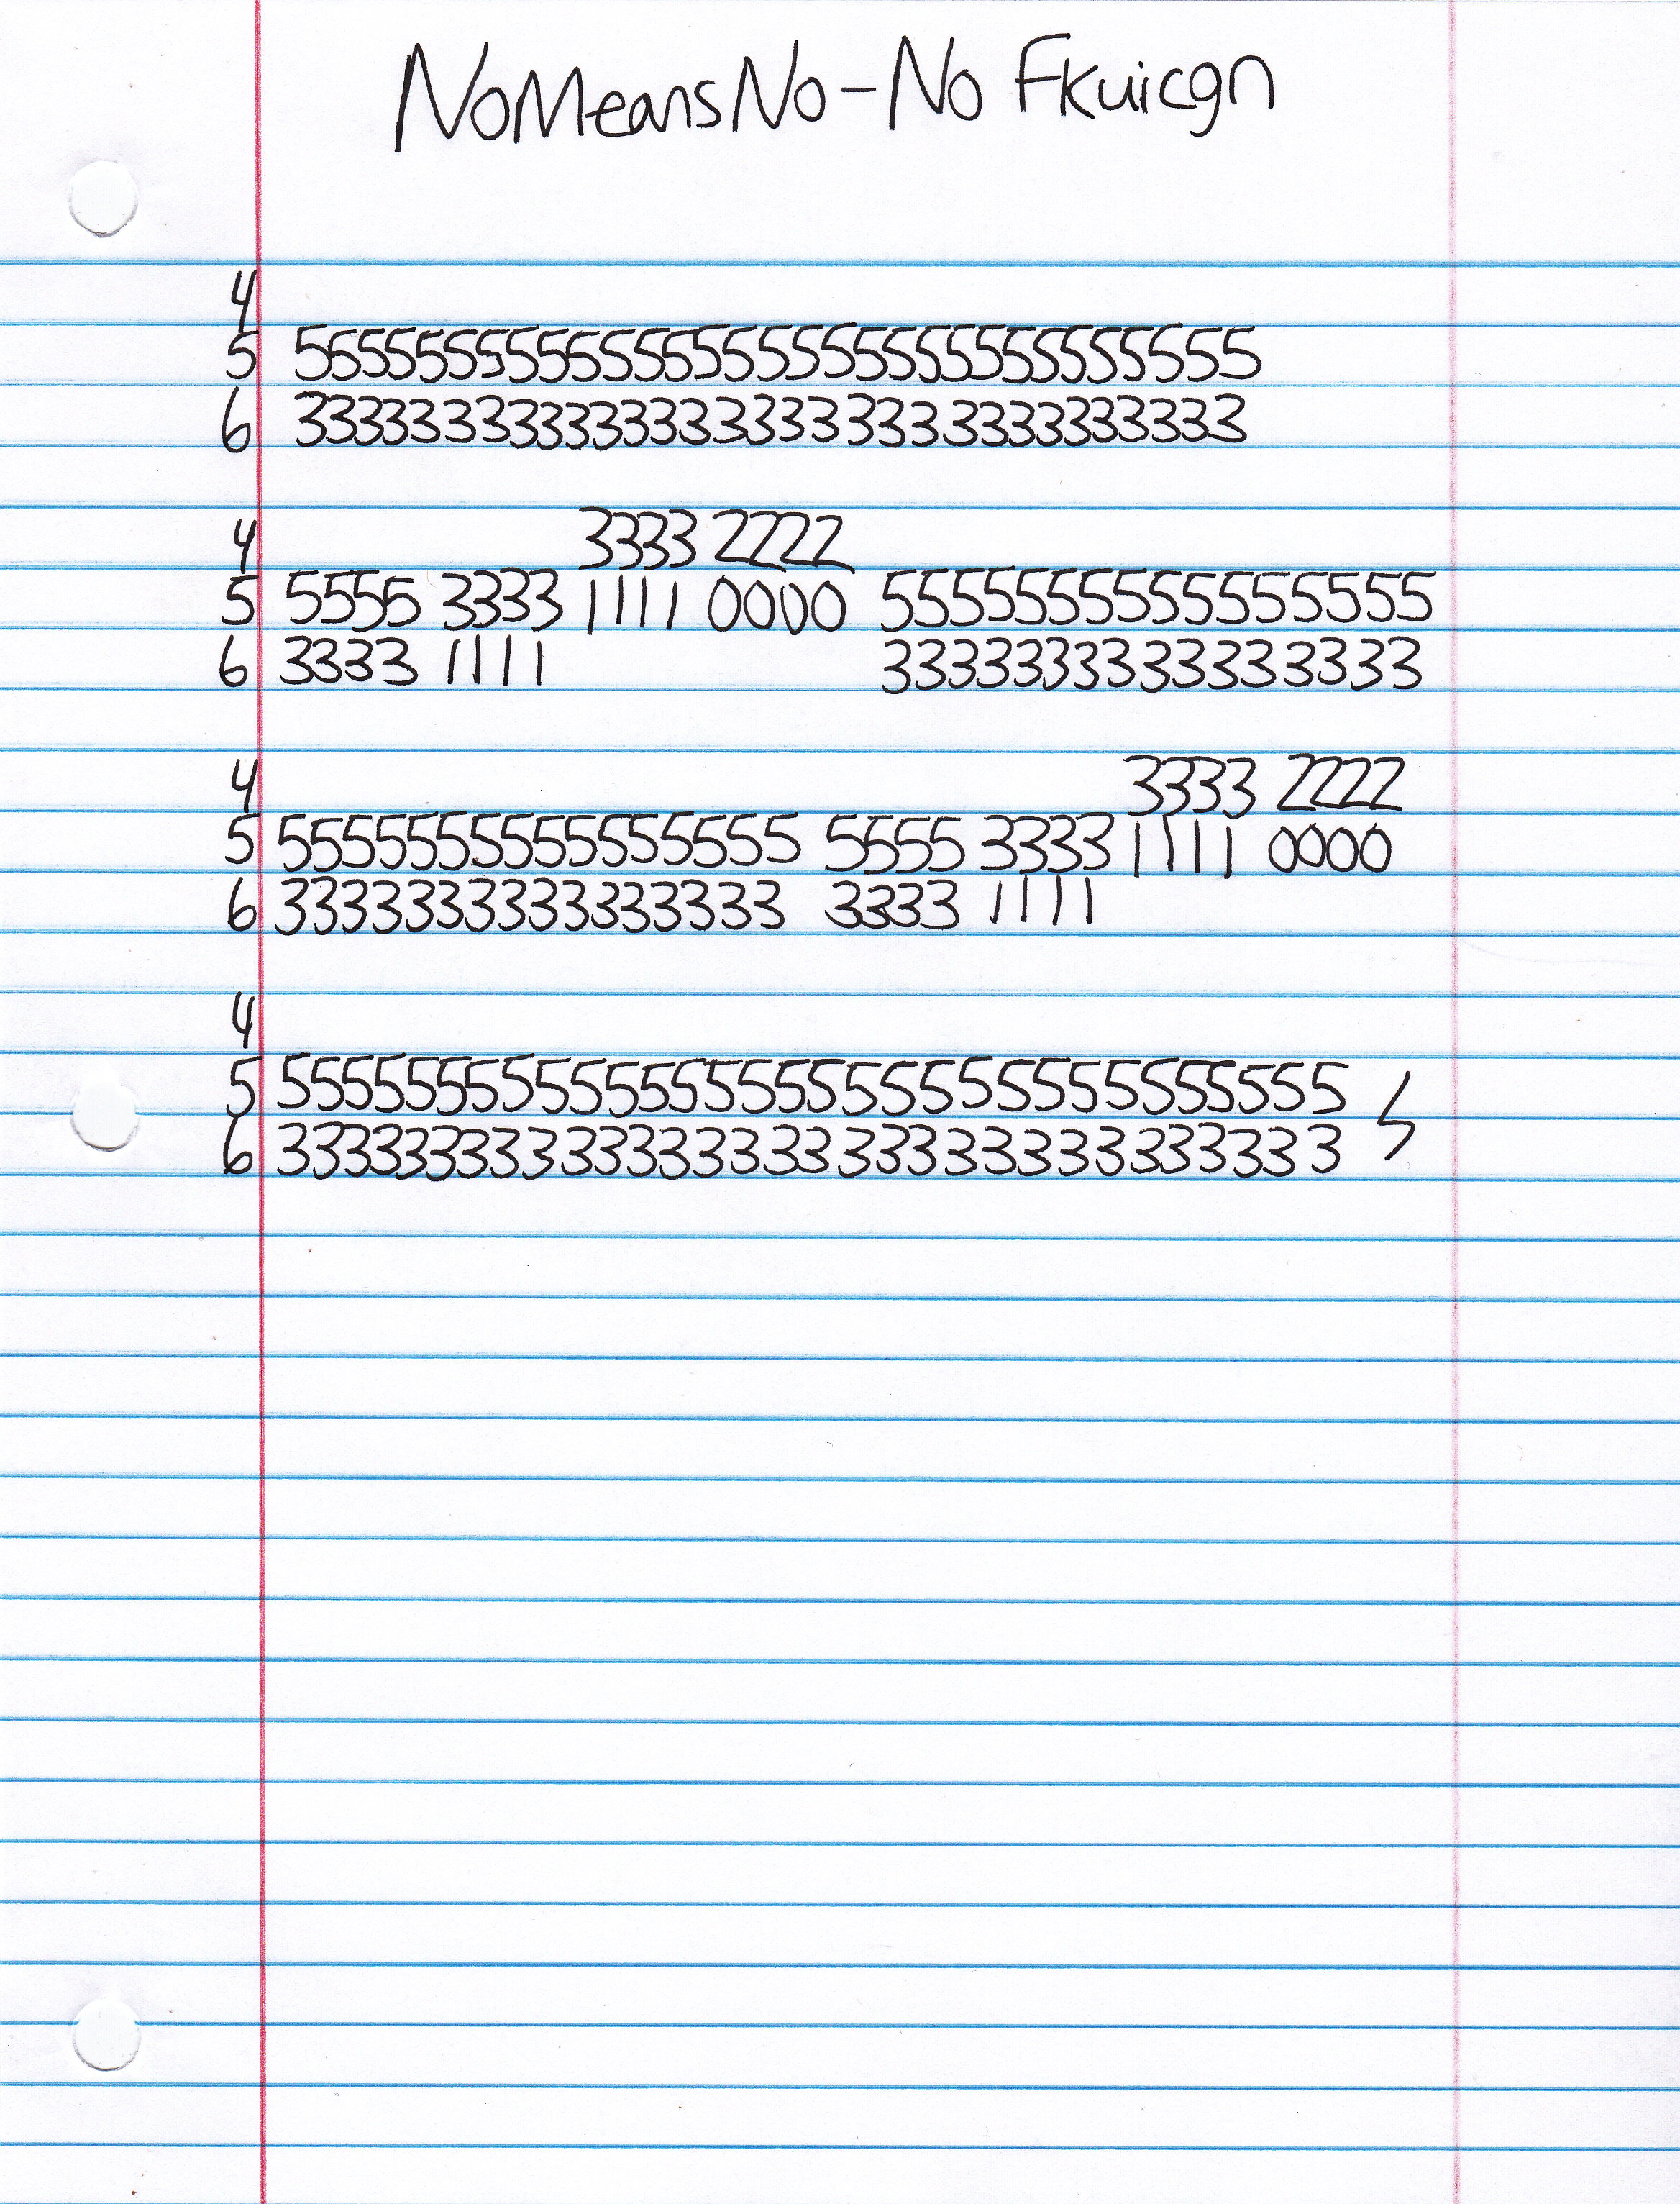 NoMeansNo - No Fkuicgn
4
5 55555555555555555555555555555555
6 33333333333333333333333333333333
4 3333 2222
5 5555 3333 1111 0000 5555555555555555
6 3333 1111 3333333333333333
4 3333 2222
5 5555555555555555 5555 3333 1111 0000
6 3333333333333333 3333 1111
4
5 55555555555555555555555555555555
6 33333333333333333333333333333333